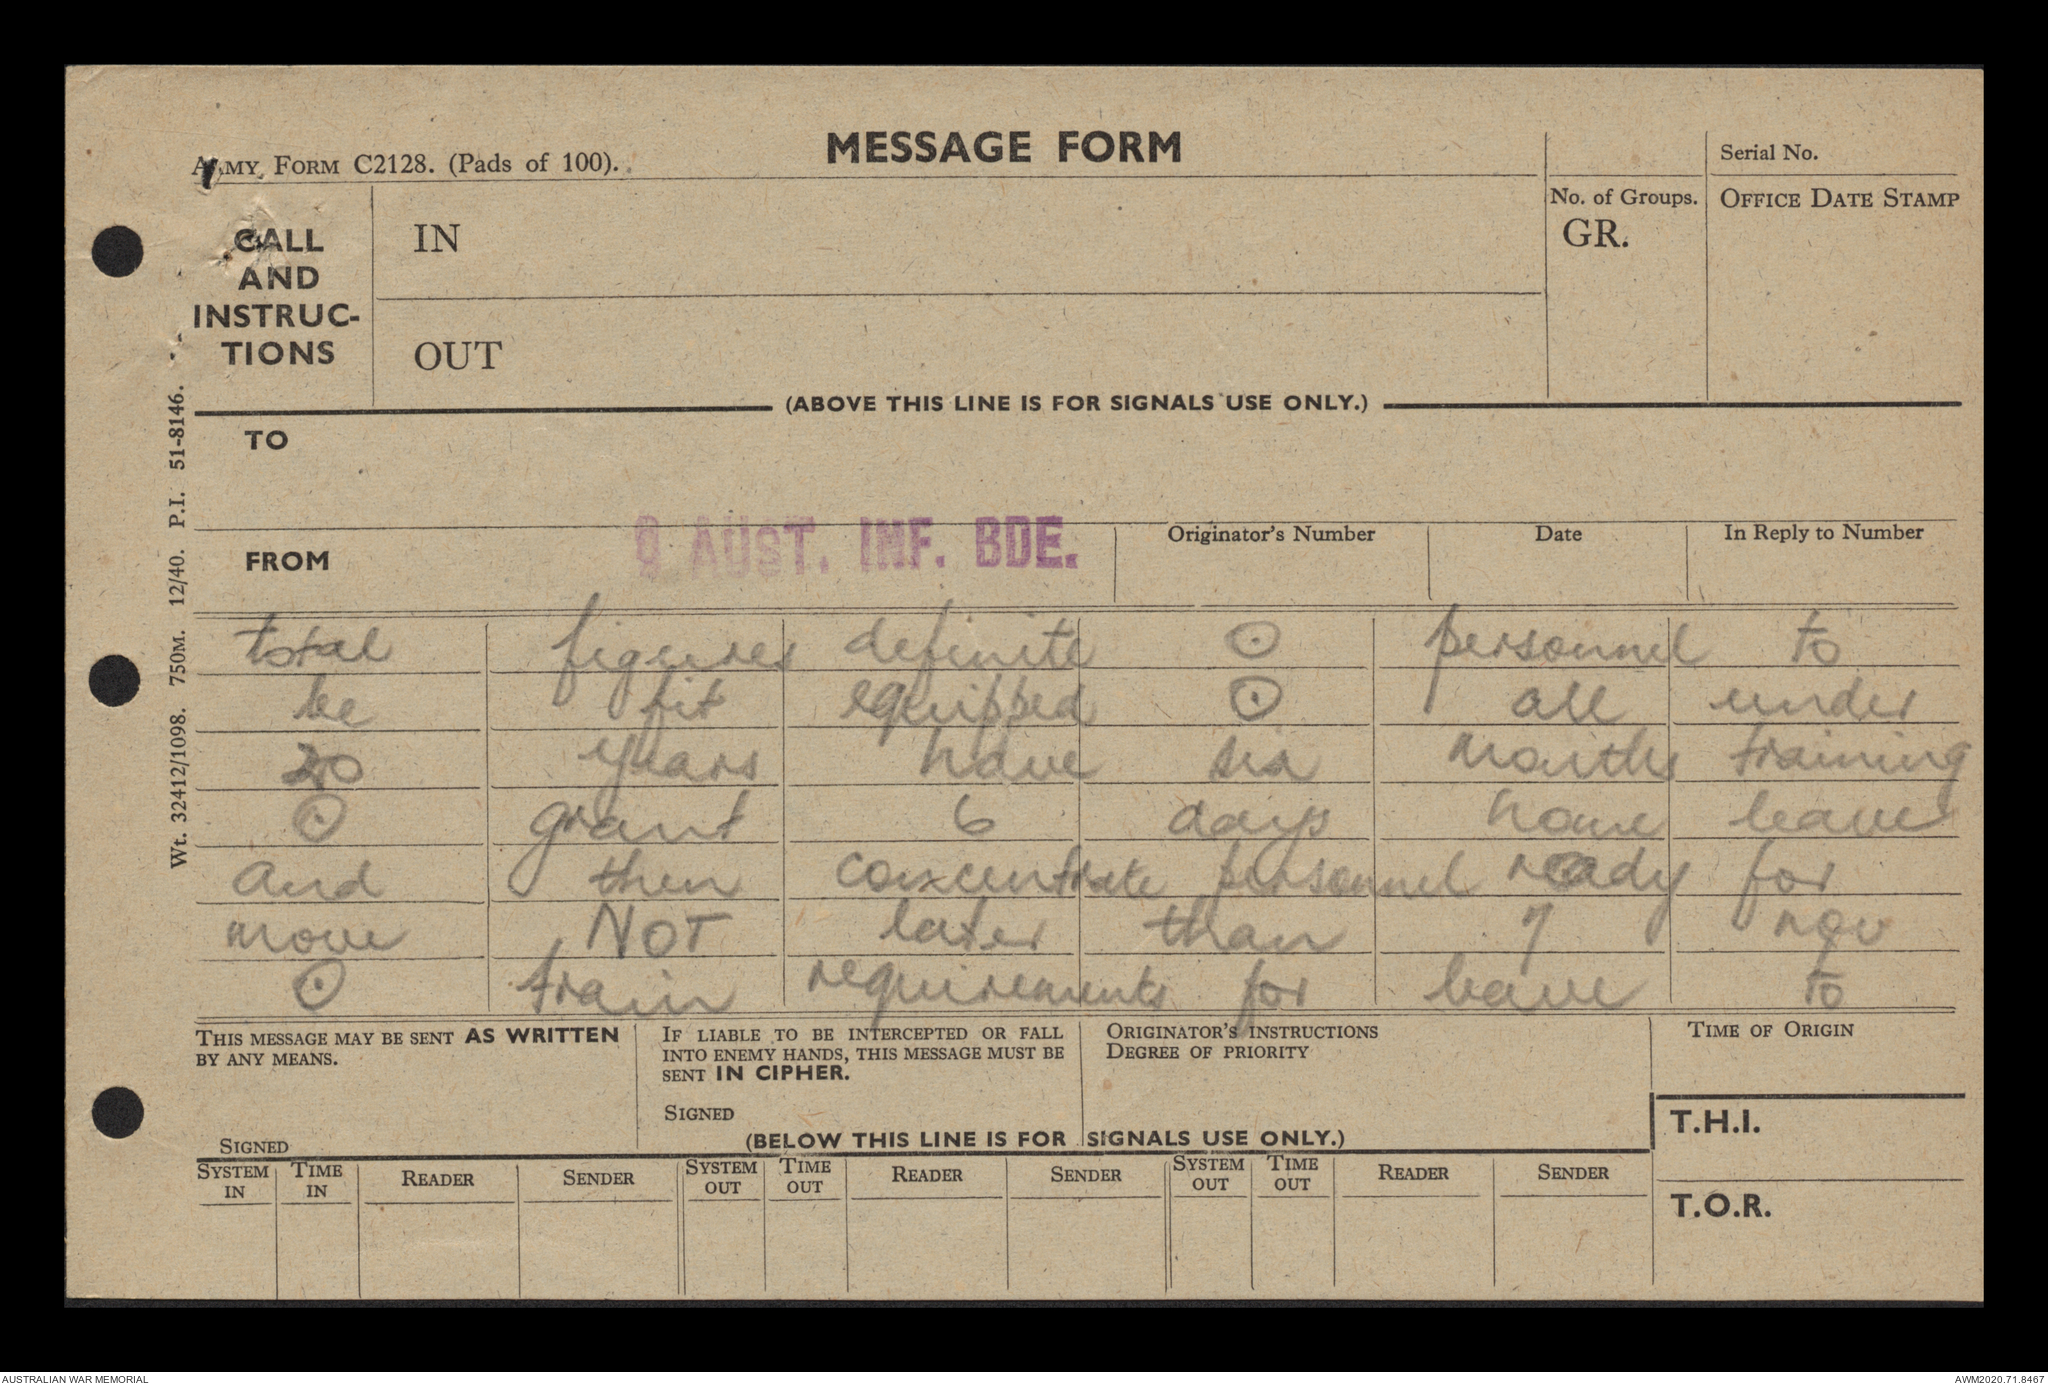 MESSAGE FORM
ARMY FORM C2128. (Pads of 100).
Serial No.
No. of Groups.
GR.
OFFICE DATE STAMP
CALL
AND
INSTRUC-
TIONS
IN
OUT
(ABOVE THIS LINE IS FOR SIGNALS USE ONLY.)
TO
FROM
9 AUST. INF. BDE.
Originator's Number
Date
In Reply to Number
total figures definite ⊙ personnel to
be fit equipped ⊙ all under
20 years have six months training
⊙ grant 6 days home leave
and then concentrate personnel ready for
move NOT later than 7 nov
⊙ train requirements for leave to
THIS MESSAGE MAY BE SENT AS WRITTEN
BY ANY MEANS.
SIGNED
IF LIABLE TO BE INTERCEPTED OR FALL
INTO ENEMY HANDS, THIS MESSAGE MUST BE
SENT IN CIPHER.
SIGNED
ORIGINATOR'S INSTRUCTIONS
DEGREE OF PRIORITY
TIME OF ORIGIN
T.H.I.
(BELOW THIS LINE IS FOR SIGNALS USE ONLY.)
SYSTEM IN
TIME IN
READER
SENDER
SYSTEM OUT
TIME OUT
READER
SENDER
SYSTEM OUT
TIME OUT
READER
SENDER
T.O.R.
Wt. 32412/1098. 750M. 12/40. P.I. 51-8146.
AUSTRALIAN WAR MEMORIAL
AWM2020.71.8467